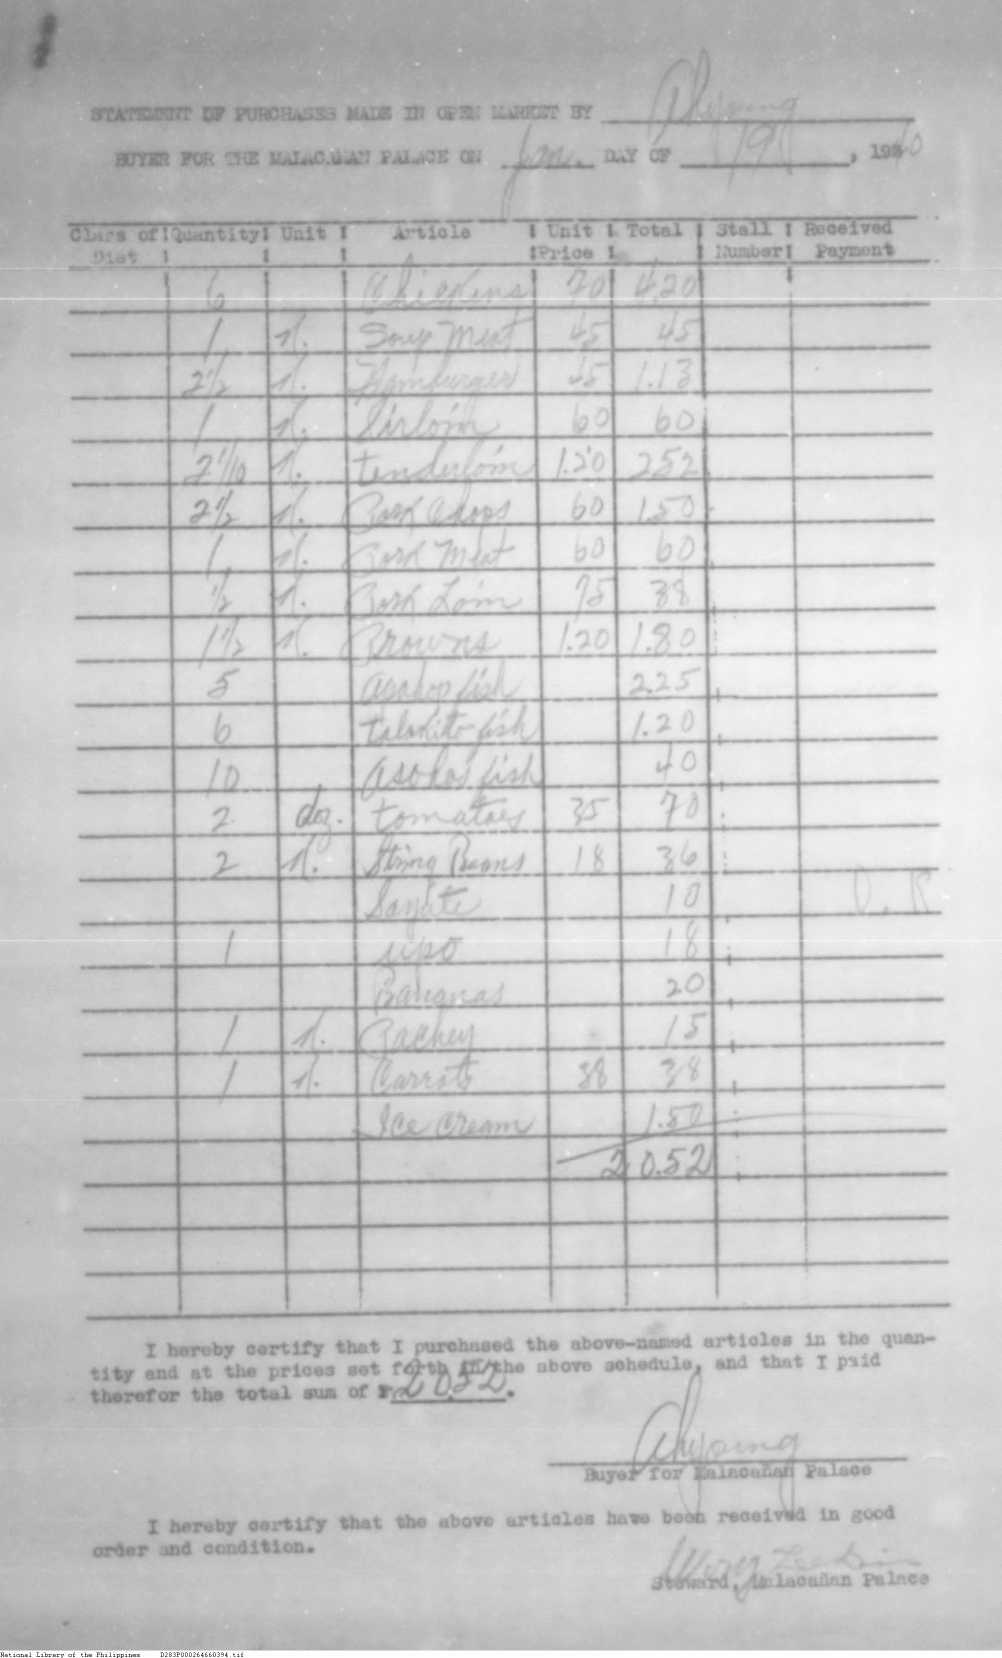 STATEMENT OF PURCHASES MADE IN OPEN MARKET BY Ahyoung
BUYER FOR THE MALACAÑAN PALACE ON Jan. DAY OF 19, 1940
Class of Quantity Unit Article Unit Total Stall Received
Dist Price Number Payment
6 Chickens 70 4.20
1 k. Soup Meat 45 45
2 1/2 k. Hamburger 45 1.13
1 k. Sirloin 60 60
2 1/10 k. tenderloin 1.20 2.52
2 1/2 k. Pork Chops 60 1.50
1 k. Pork Meat 60 60
1/2 k. Pork Loin 75 38
1 1/2 k. Prowns 1.20 1.80
5 fish 2.25
6 talakito fish 1.20
10 asohos fish 40
2 doz. tomatoes 35 70
2 k. String Beans 18 36
Sayote 10
1 upo 18
Bananas 20
1 k. Pachey 15
1 k. Carrots 38 38
Ice Cream 1.50
20.52
I hereby certify that I purchased the above-named articles in the quan-
tity and at the prices set forth in the above schedule, and that I paid
therefor the total sum of ₱ 20.52.
Ahyoung
Buyer for Malacañan Palace
I hereby certify that the above articles have been received in good
order and condition.
Steward, Malacañan Palace
National Library of the Philippines D283P000264660394.tif